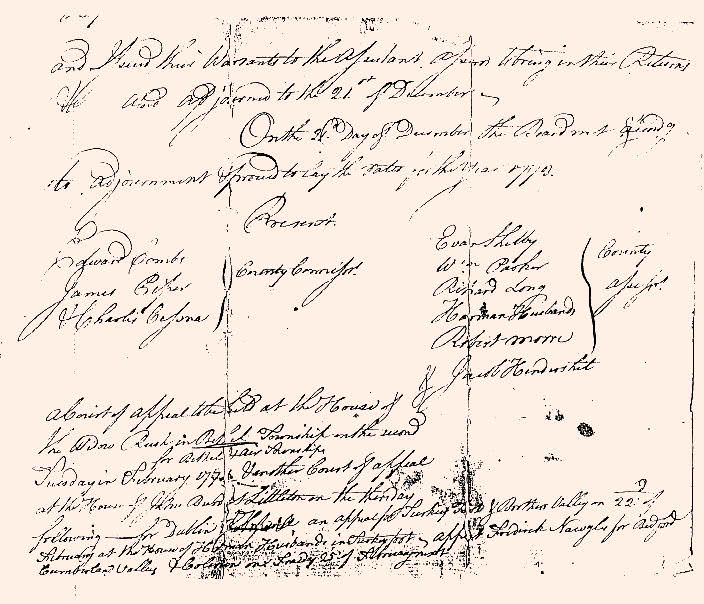 and Issued their Warrants to the Assistant Assessors to bring in their Returns
and Adjorned to the 21st of December
On the 21st Day of December the Board met
to Adjournment & proceed to lay the rates for the Year 1773.
Present.
Edward Combs
James Piper
& Charles Cessna
County Commissrs.
Evan Shelby
Wm Parker
Richard Long
Harman Husbands
Robert Moore
& Jacob Hendershit
County
Assessrs.
a Court of appeal to be held at the House of
the Widow Rush in Bethel Township on the second
for Bethel & Air Township
Tuesday in February 177 & another Court of appeal
at the House of John Burd at Littleton on the thursday
following for Dublin an appeal for Turkey & Brother Valley on 22d of
February at the House of Harman Husbands in appeal Fredrick Nawgle for Bedford
Cumberland Valley & Colerain on 25th of